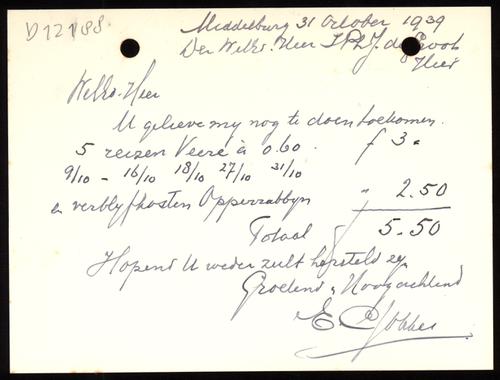 D12188.
Middelburg 31 October 1939
Den WelEd. Heer J. Ph. J. de
Hier
WelEd. Heer
U gelieve my nog te doen toekomen.
5 reizen Veere à 0.60. f 3 "
9/10 - 16/10 18/10 27/10 31/10
a verblyfkosten Opperrabbyn " 2.50
Totaal f 5.50
Hopend U weder zult hersteld zyn
Groetend, Hoogachtend
E